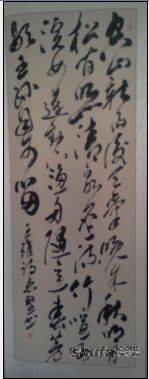 空山新雨後天氣晚来秋明月
松間照清泉石上流竹喧歸
浣女蓮動下漁舟隨意春芳
歇王孫自可留
王維詩